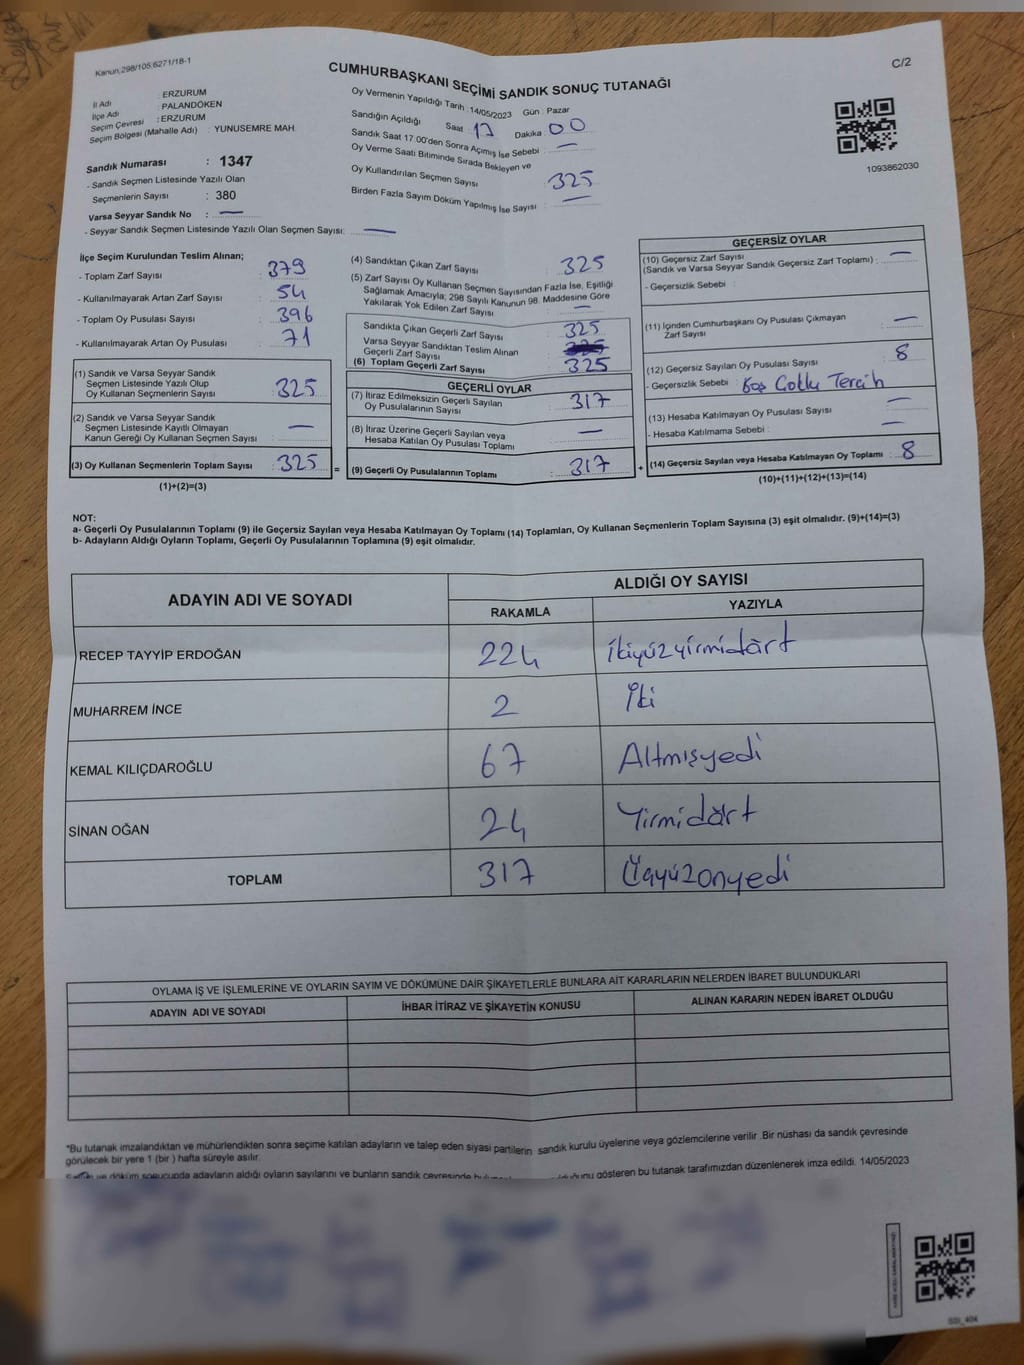 Kanun:298/105;6271/18-1
CUMHURBAŞKANI SEÇİMİ SANDIK SONUÇ TUTANAĞI
C/2
İl Adı : ERZURUM
İlçe Adı : PALANDÖKEN
Seçim Çevresi : ERZURUM
Seçim Bölgesi (Mahalle Adı) : YUNUSEMRE MAH.
Sandık Numarası : 1347
- Sandık Seçmen Listesinde Yazılı Olan
Seçmenlerin Sayısı : 380
Varsa Seyyar Sandık No : —
- Seyyar Sandık Seçmen Listesinde Yazılı Olan Seçmen Sayısı: —
Oy Vermenin Yapıldığı Tarih : 14/05/2023 Gün : Pazar
Sandığın Açıldığı Saat 17 Dakika : 00
Sandık Saat 17:00'den Sonra Açımış İse Sebebi : —
Oy Verme Saati Bitiminde Sırada Bekleyen ve
Oy Kullandırılan Seçmen Sayısı 325
Birden Fazla Sayım Döküm Yapılmış İse Sayısı : —
1093862030
İlçe Seçim Kurulundan Teslim Alınan;
- Toplam Zarf Sayısı : 379
- Kullanılmayarak Artan Zarf Sayısı : 54
- Toplam Oy Pusulası Sayısı : 396
- Kullanılmayarak Artan Oy Pusulası : 71
(1) Sandık ve Varsa Seyyar Sandık
Seçmen Listesinde Yazılı Olup
Oy Kullanan Seçmenlerin Sayısı : 325
(2) Sandık ve Varsa Seyyar Sandık
Seçmen Listesinde Kayıtlı Olmayan
Kanun Gereği Oy Kullanan Seçmen Sayısı : —
(3) Oy Kullanan Seçmenlerin Toplam Sayısı : 325 =
(1)+(2)=(3)
(4) Sandıktan Çıkan Zarf Sayısı : 325
(5) Zarf Sayısı Oy Kullanan Seçmen Sayısından Fazla İse, Eşitliği
Sağlamak Amacıyla; 298 Sayılı Kanunun 98. Maddesine Göre
Yakılarak Yok Edilen Zarf Sayısı : —
Sandıkta Çıkan Geçerli Zarf Sayısı : 325
Varsa Seyyar Sandıktan Teslim Alınan
Geçerli Zarf Sayısı :
(6) Toplam Geçerli Zarf Sayısı : 325
GEÇERLİ OYLAR
(7) İtiraz Edilmeksizin Geçerli Sayılan
Oy Pusulalarının Sayısı : 317
(8) İtiraz Üzerine Geçerli Sayılan veya
Hesaba Katılan Oy Pusulası Toplamı : —
(9) Geçerli Oy Pusulalarının Toplamı : 317 +
GEÇERSİZ OYLAR
(10) Geçersiz Zarf Sayısı
(Sandık ve Varsa Seyyar Sandık Geçersiz Zarf Toplamı) : —
- Geçersizlik Sebebi :
(11) İçinden Cumhurbaşkanı Oy Pusulası Çıkmayan
Zarf Sayısı : —
(12) Geçersiz Sayılan Oy Pusulası Sayısı : 8
- Geçersizlik Sebebi : Boş Çoklu Tercih
(13) Hesaba Katılmayan Oy Pusulası Sayısı : —
- Hesaba Katılmama Sebebi : —
(14) Geçersiz Sayılan veya Hesaba Katılmayan Oy Toplamı : 8
(10)+(11)+(12)+(13)=(14)
NOT:
a- Geçerli Oy Pusulalarının Toplamı (9) ile Geçersiz Sayılan veya Hesaba Katılmayan Oy Toplamı (14) Toplamları, Oy Kullanan Seçmenlerin Toplam Sayısına (3) eşit olmalıdır. (9)+(14)=(3)
b- Adayların Aldığı Oyların Toplamı, Geçerli Oy Pusulalarının Toplamına (9) eşit olmalıdır.
ADAYIN ADI VE SOYADI ALDIĞI OY SAYISI
RAKAMLA YAZIYLA
RECEP TAYYİP ERDOĞAN 224 İkiyüzyirmidört
MUHARREM İNCE 2 İki
KEMAL KILIÇDAROĞLU 67 Altmışyedi
SİNAN OĞAN 24 Yirmidört
TOPLAM 317 Üçyüzonyedi
OYLAMA İŞ VE İŞLEMLERİNE VE OYLARIN SAYIM VE DÖKÜMÜNE DAİR ŞİKAYETLERLE BUNLARA AİT KARARLARIN NELERDEN İBARET BULUNDUKLARI
ADAYIN ADI VE SOYADI İHBAR İTİRAZ VE ŞİKAYETİN KONUSU ALINAN KARARIN NEDEN İBARET OLDUĞU
*Bu tutanak imzalandıktan ve mühürlendikten sonra seçime katılan adayların ve talep eden siyasi partilerin sandık kurulu üyelerine veya gözlemcilerine verilir .Bir nüshası da sandık çevresinde
görülecek bir yere 1 (bir ) hafta süreyle asılır.
ve döküm sonucunda adayların aldığı oyların sayılarını ve bunların sandık çevresinde gösteren bu tutanak tarafımızdan düzenlenerek imza edildi. 14/05/2023